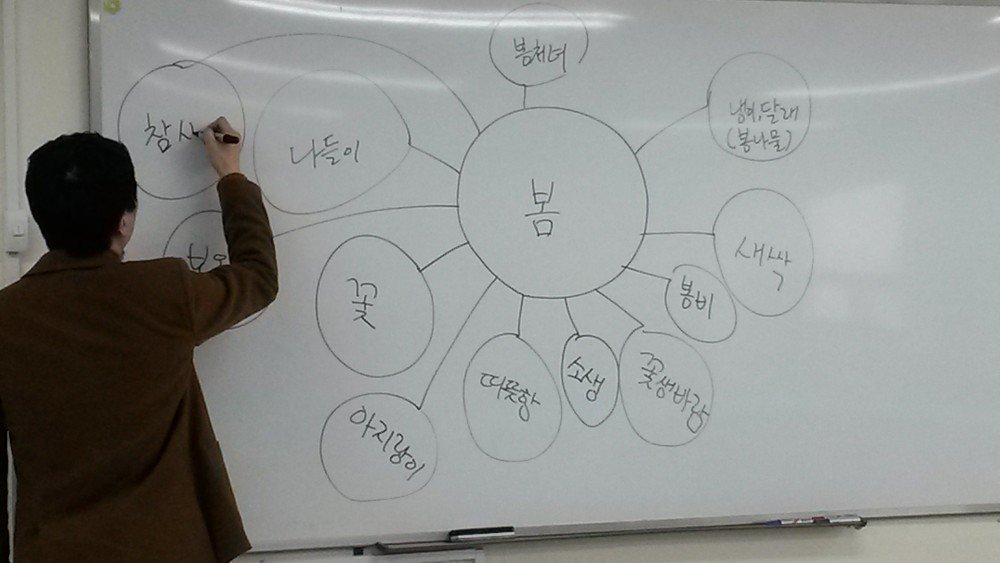 봄처녀
냉이, 달래
(봄나물)
참새
나들이
봄
새싹
꽃
봄비
따뜻함
소생
꽃샘바람
아지랑이